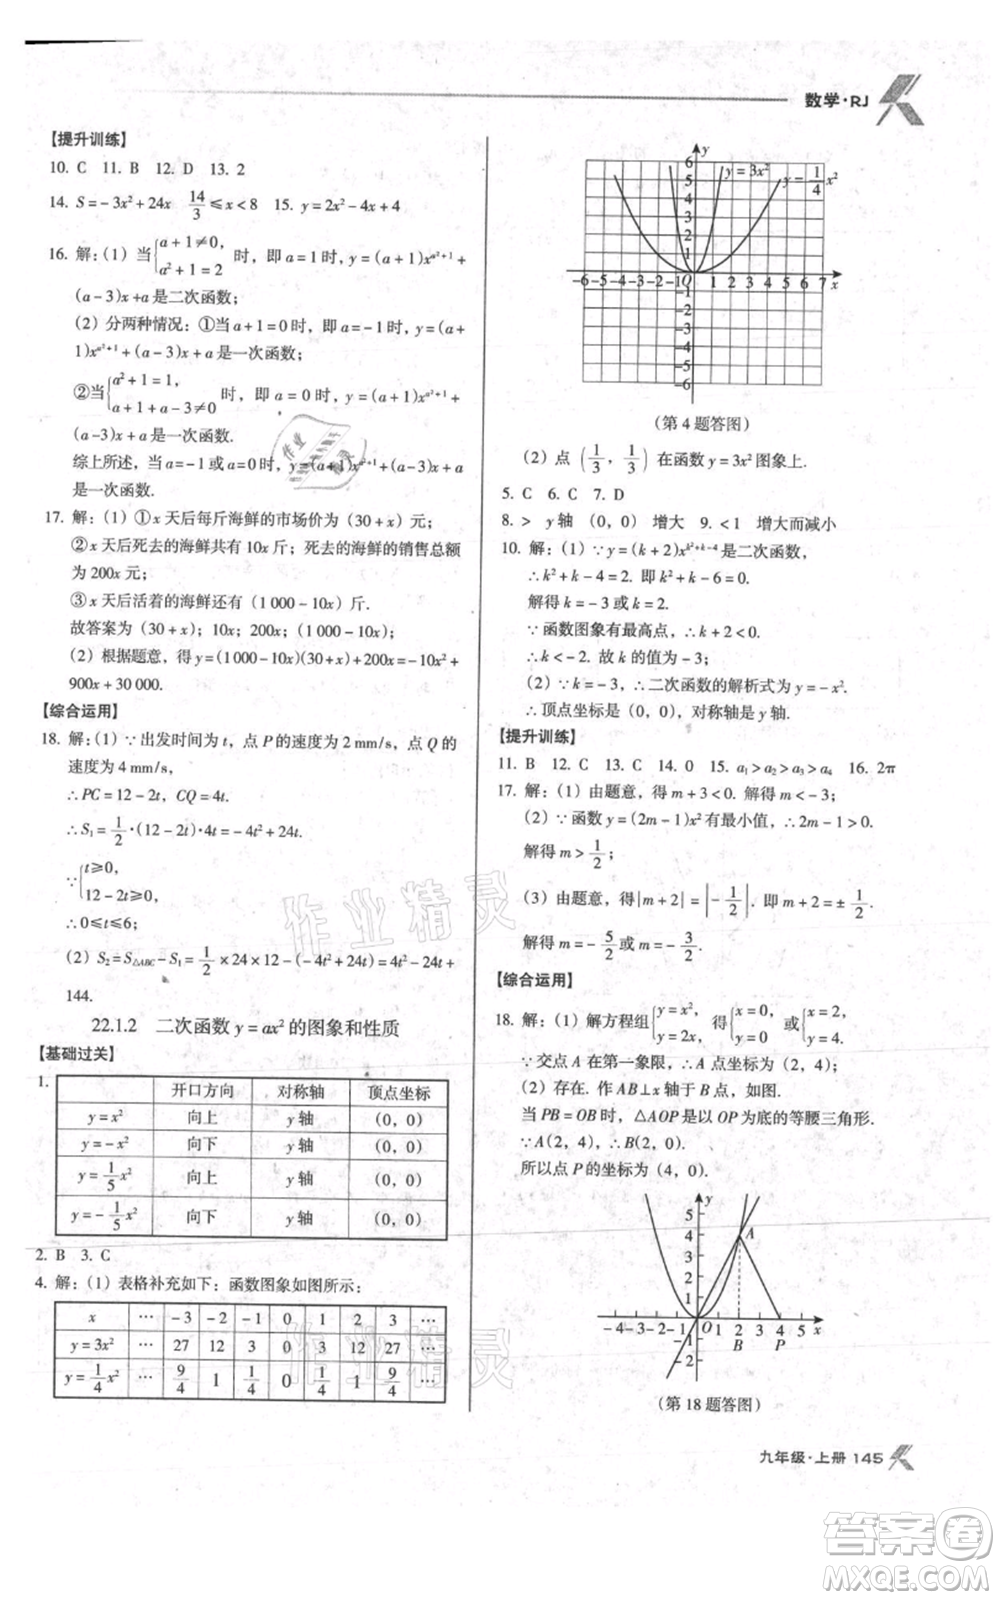 数学·RJ
【提升训练】
10. C 11. B 12. D 13. 2
14. S=-3x²+24x 14/3≤x<8 15. y=2x²-4x+4
16. 解:(1) 当{a+1≠0, a²+1=2 时, 即 a=1 时, y=(a+1)x^(a²+1)+
(a-3)x+a 是二次函数;
(2) 分两种情况: ①当 a+1=0 时, 即 a=-1 时, y=(a+
1)x^(a²+1)+(a-3)x+a 是一次函数;
②当{a²+1=1, a+1+a-3≠0 时, 即 a=0 时, y=(a+1)x^(a²+1)+
(a-3)x+a 是一次函数.
综上所述, 当 a=-1 或 a=0 时, y=(a+1)x^(a²+1)+(a-3)x+a
是一次函数.
17. 解:(1) ①x 天后每斤海鲜的市场价为(30+x)元;
②x 天后死去的海鲜共有 10x 斤; 死去的海鲜的销售总额
为 200x 元;
③x 天后活着的海鲜还有(1 000-10x)斤.
故答案为(30+x); 10x; 200x; (1 000-10x)
(2) 根据题意, 得 y=(1 000-10x)(30+x)+200x=-10x²+
900x+30 000.
【综合运用】
18. 解:(1) ∵出发时间为 t, 点 P 的速度为 2 mm/s, 点 Q 的
速度为 4 mm/s,
∴PC=12-2t, CQ=4t.
∴S₁=1/2·(12-2t)·4t=-4t²+24t.
∵{t≥0, 12-2t≥0,
∴0≤t≤6;
(2) S₂=S△ABC-S₁=1/2×24×12-(-4t²+24t)=4t²-24t+
144.
22.1.2 二次函数 y=ax² 的图象和性质
【基础过关】
1.
开口方向 对称轴 顶点坐标
y=x² 向上 y 轴 (0, 0)
y=-x² 向下 y 轴 (0, 0)
y=1/5x² 向上 y 轴 (0, 0)
y=-1/5x² 向下 y 轴 (0, 0)
2. B 3. C
4. 解:(1) 表格补充如下: 函数图象如图所示:
x … -3 -2 -1 0 1 2 3 …
y=3x² … 27 12 3 0 3 12 27 …
y=1/4x² … 9/4 1 1/4 0 1/4 1 9/4 …
y y=3x² y=1/4x²
6
5
4
3
2
1
-6-5-4-3-2-1O 1 2 3 4 5 6 7 x
-1
-2
-3
-4
-5
-6
(第 4 题答图)
(2) 点(1/3, 1/3)在函数 y=3x² 图象上.
5. C 6. C 7. D
8. > y 轴 (0, 0) 增大 9. <1 增大而减小
10. 解:(1) ∵y=(k+2)x^(k²+k-4)是二次函数,
∴k²+k-4=2. 即 k²+k-6=0.
解得 k=-3 或 k=2.
∵函数图象有最高点, ∴k+2<0.
∴k<-2. 故 k 的值为-3;
(2) ∵k=-3, ∴二次函数的解析式为 y=-x².
∴顶点坐标是(0, 0), 对称轴是 y 轴.
【提升训练】
11. B 12. C 13. C 14. 0 15. a₁>a₂>a₃>a₄ 16. 2π
17. 解:(1) 由题意, 得 m+3<0. 解得 m<-3;
(2) ∵函数 y=(2m-1)x² 有最小值, ∴2m-1>0.
解得 m>1/2;
(3) 由题意, 得|m+2|=|-1/2|, ∴m+2=±1/2.
解得 m=-5/2 或 m=-3/2.
【综合运用】
18. 解:(1) 解方程组{y=x², y=2x, 得{x=0, y=0 或{x=2, y=4.
∵交点 A 在第一象限, ∴A 点坐标为(2, 4);
(2) 存在. 作 AB⊥x 轴于 B 点, 如图.
当 PB=OB 时, △AOP 是以 OP 为底的等腰三角形.
∵A(2, 4), ∴B(2, 0).
所以点 P 的坐标为(4, 0).
y
5
4 A
3
2
1
-4-3-2-1 O 1 2 3 4 5 x
B P
-1
-2
(第 18 题答图)
九年级·上册 145
作业精灵
作业精灵
作业
答案卷
MXQE.COM